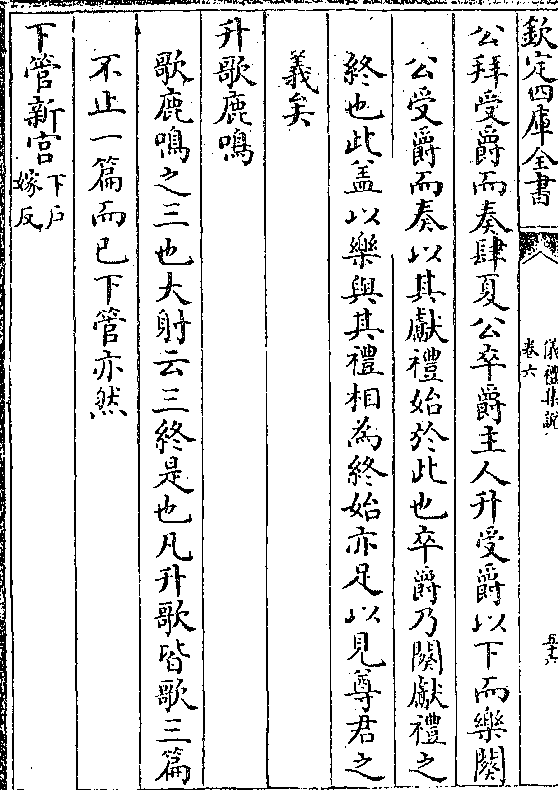 欽定四庫全書
儀禮集說
卷六
五十六
公拜受爵而奏肆夏公卒爵主人升受爵以下而樂闋
公受爵而奏以其獻禮始於此也卒爵乃闋獻禮之
終也此蓋以樂與其禮相為終始亦足以見尊君之
義矣
升歌鹿鳴
歌鹿鳴之三也大射云三終是也凡升歌皆歌三篇
不止一篇而已下管亦然
下管新宮下戶
嫁反